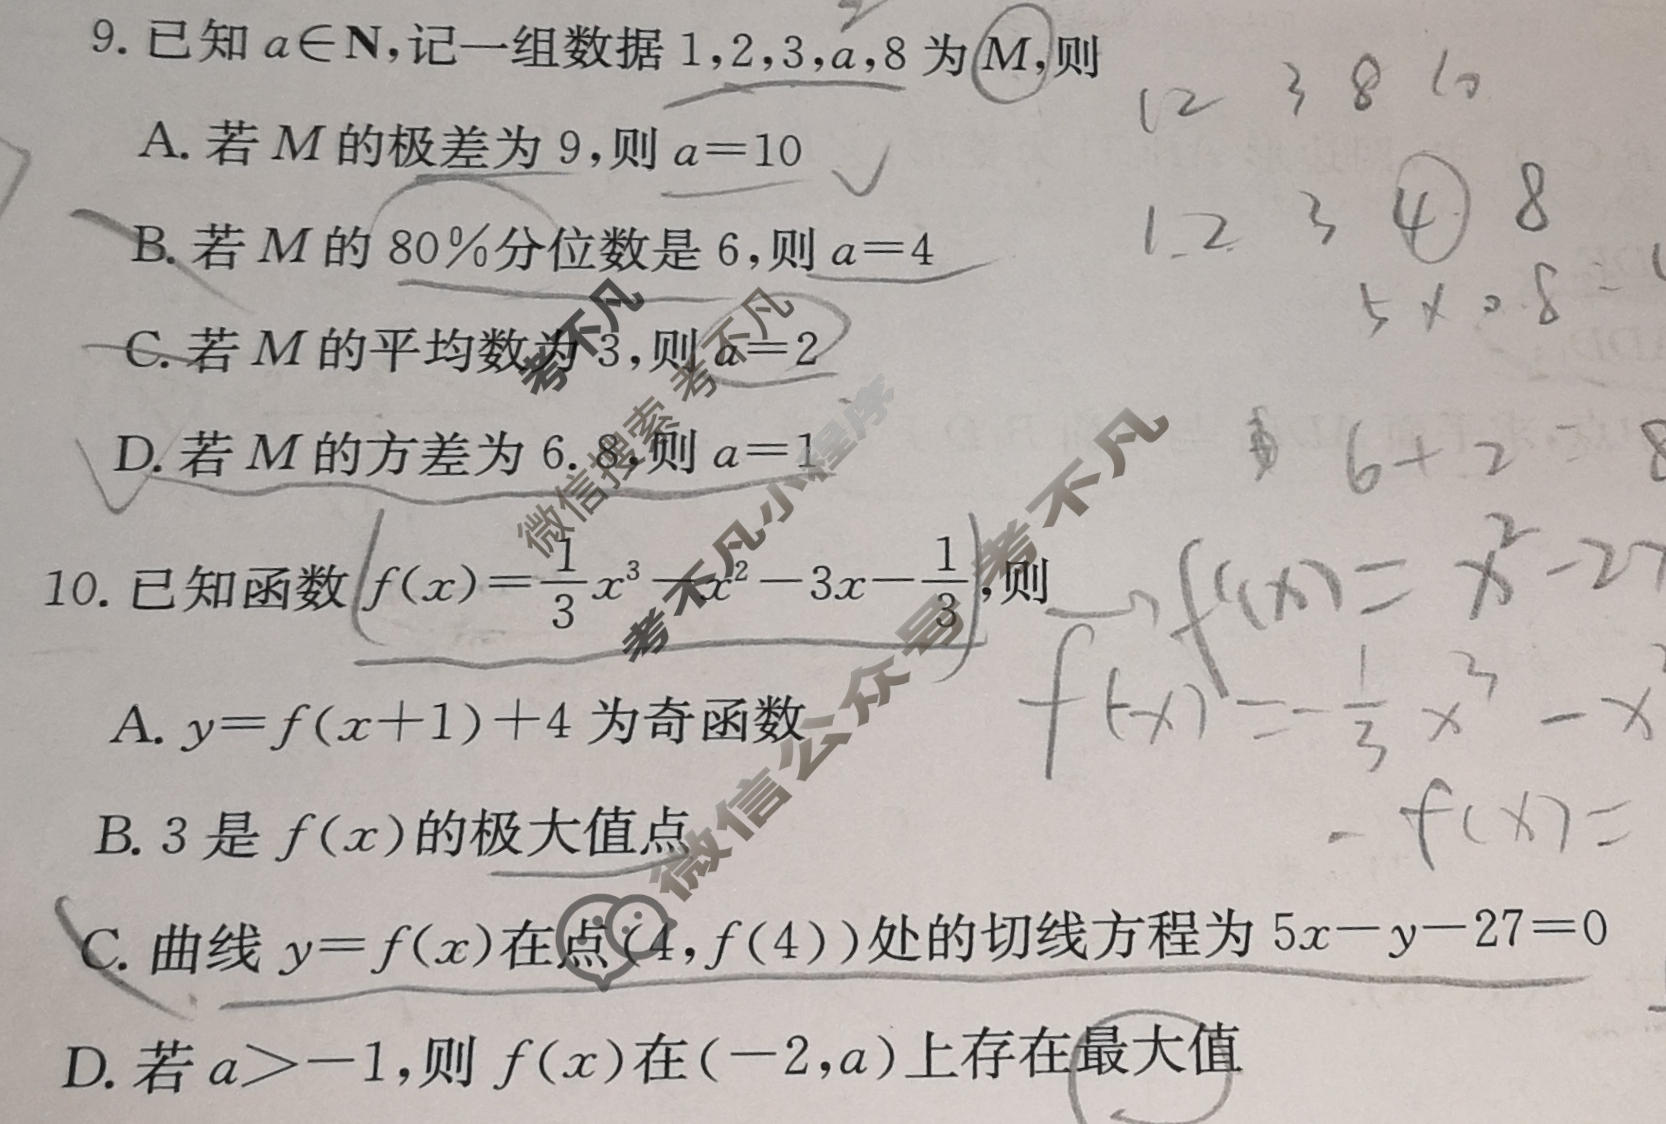 9. 已知 a∈N,记一组数据 1,2,3,a,8 为 M,则
1 2 3 8 10
A. 若 M 的极差为 9,则 a=10 ✓
B. 若 M 的 80%分位数是 6,则 a=4
1 2 3 4 8
5 × 0.8 =
C. 若 M 的平均数为 3,则 a=2
D. 若 M 的方差为 6.8,则 a=1
6+2=8
10. 已知函数 f(x)=1/3x³-x²-3x-1/3,则
f'(x)=x²-2
f(-x)=-1/3x³-x
A. y=f(x+1)+4 为奇函数
-f(x)=
B. 3 是 f(x)的极大值点
C. 曲线 y=f(x)在点(4,f(4))处的切线方程为 5x-y-27=0
D. 若 a>-1,则 f(x)在(-2,a)上存在最大值
考不凡
微信搜索 考不凡
考不凡小程序
微信公众号 考不凡